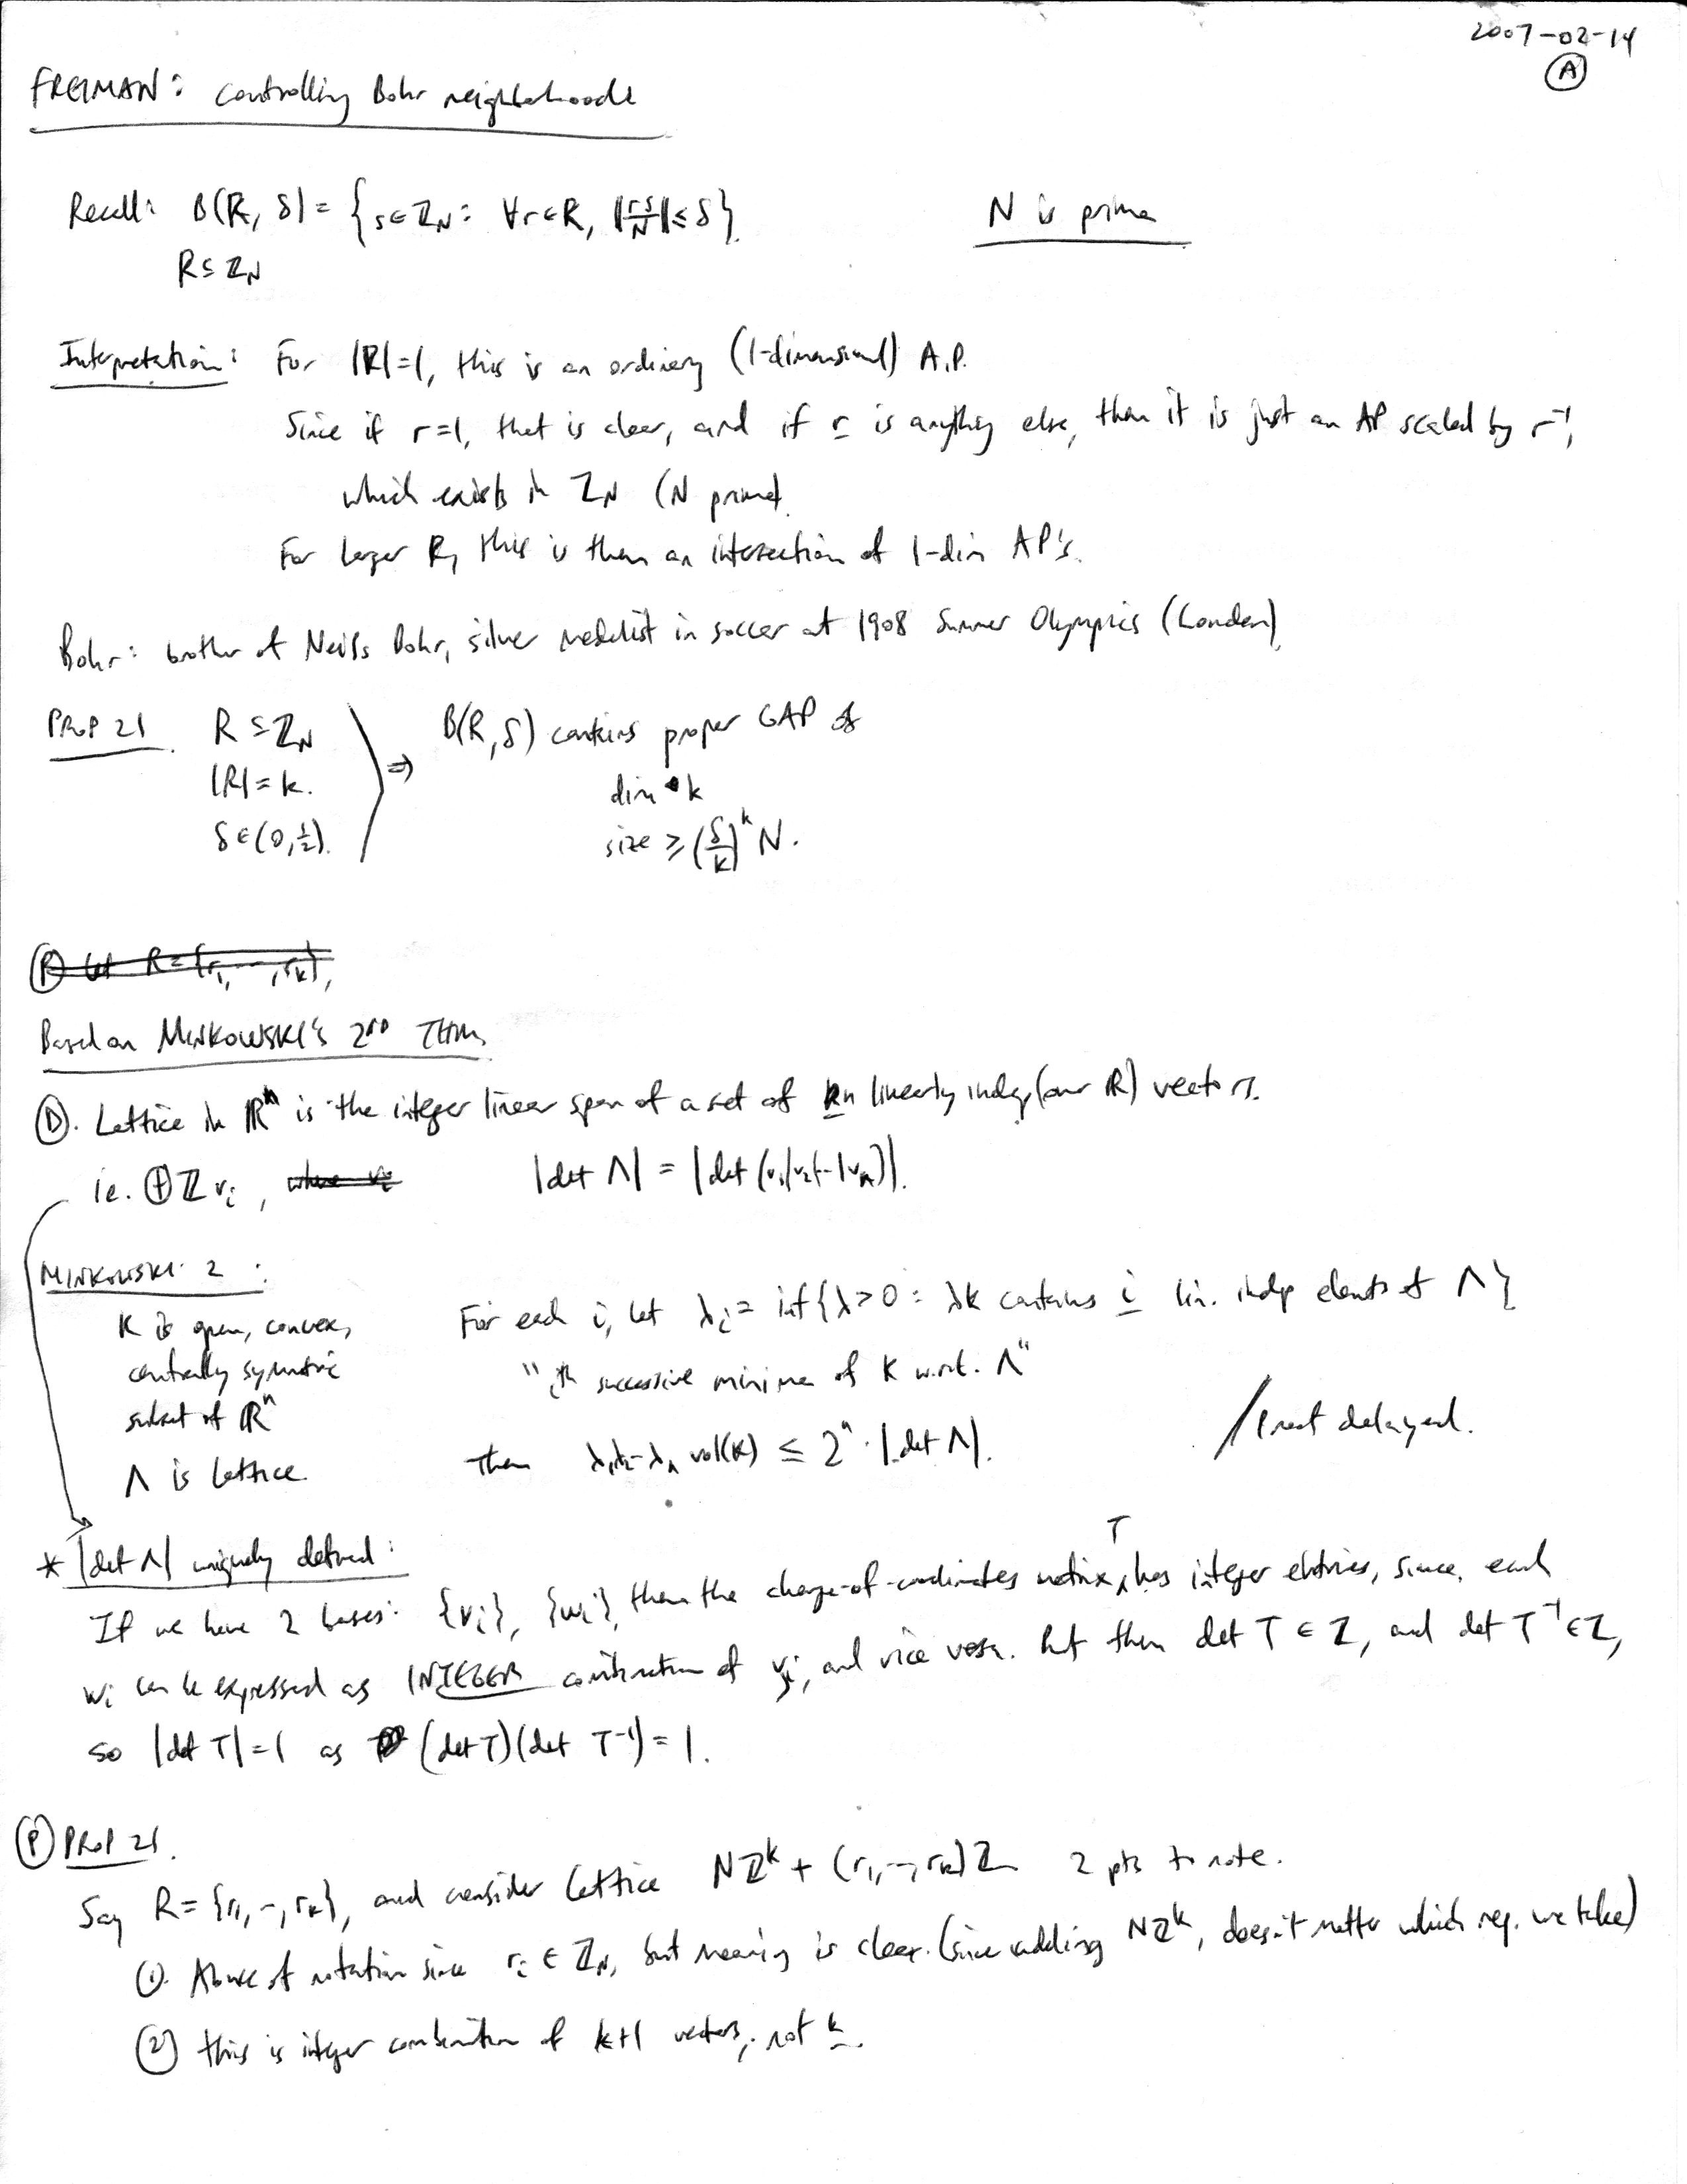 2007-02-14
Ⓐ
FREIMAN: controlling Bohr neighborhoods
Recall: B(R, δ) = {s∈ℤ_N: ∀r∈R, ‖rs/N‖≤δ}. N is prime
R⊆ℤ_N
Interpretation: For |R|=1, this is an ordinary (1-dimensional) A.P.
Since if r=1, that is clear, and if r is anything else, then it is just an AP scaled by r⁻¹,
which exists in ℤ_N (N prime).
For larger R, this is then an intersection of 1-dim AP's.
Bohr: brother of Neils Bohr, silver medalist in soccer at 1908 Summer Olympics (London)
PROP 21. R ⊆ ℤ_N ⇒ B(R, δ) contains proper GAP of
|R| = k. dim k
δ ∈ (0, ½). size ≥ (δ/k)^k N.
Ⓟ Let R = {r₁, --, r_k},
Based on MINKOWSKI'S 2ND THM.
Ⓓ. Lattice in ℝⁿ is the integer linear span of a set of n linearly indep (over ℝ) vectors.
ie. ⊕ℤv_i, where v_i |det Λ| = |det (v₁|v₂|--|v_n)|.
MINKOWSKI 2:
K is open, convex, For each i, let λ_i = inf{λ>0: λK contains i lin. indep elements of Λ}
centrally symmetric "ith successive minima of K w.r.t. Λ"
subset of ℝⁿ /Proof delayed.
Λ is lattice. Then λ₁λ₂--λ_n vol(K) ≤ 2ⁿ·|det Λ|.
* |det Λ| uniquely defined:
If we have 2 bases: {v_i}, {w_i}, then the change-of-coordinates matrix T has integer entries, since each
w_i can be expressed as INTEGER combination of v_j, and vice versa. But then det T ∈ ℤ, and det T⁻¹ ∈ ℤ,
so |det T| = 1 as (det T)(det T⁻¹) = 1.
Ⓟ PROP 21.
Say R = {r₁, --, r_k}, and consider lattice Nℤ^k + (r₁, --, r_k)ℤ 2 pts to note.
①. Abuse of notation since r_i ∈ ℤ_N, but meaning is clear. (since adding Nℤ^k, doesn't matter which rep. we take)
② this is integer combination of k+1 vectors, not k.